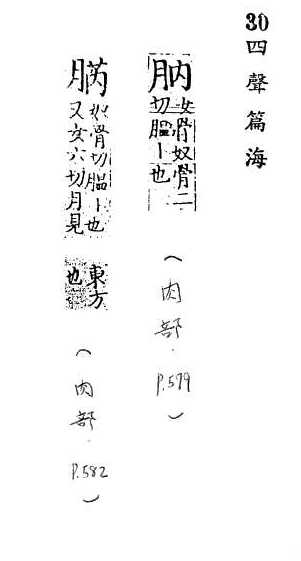 30 四聲篇海
肭 女骨奴骨二
切膃丨也
(肉部. P.579)
䏔 奴骨切膃丨也
又女六切月見
東方
也
(肉部. P.582)